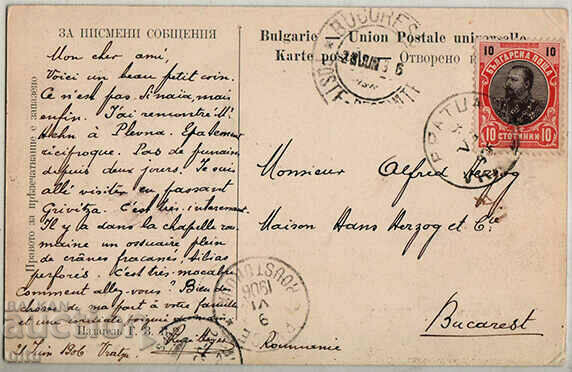 ЗА ПИСМЕНИ СОБЩЕНИЯ
Mon cher ami,
Voici un beau petit coin.
Ce n'est pas Sinaïa, mais
enfin. J'ai rencontré M.
à Plevna. Épatement
réciproque. Pas de
depuis deux jours. Je suis
allé visiter en passant
Grivitza. C'est très interessant
Il y a dans la chapelle rou-
maine un ossuaire plein
de crânes fracassés, tibias
perforés. C'est très macabre.
Comment allez-vous? Bien des
choses de ma part à votre famille
et une cordiale poignée de main
21 Juin 1906 Vratza
Правото за препечатвание е запазено
Bulgarie Union Postale universelle
Karte po Отворено
10 10
БЪЛГАРСКА ПОЩА
10 СТОТИНКИ 10
BUCUREȘ
ВРАТЦА
Monsieur Alfred Herzog
Maison Hans Herzog et Cie
Bucarest
Roumanie
ROUSTCH
1906
БАЛКАН